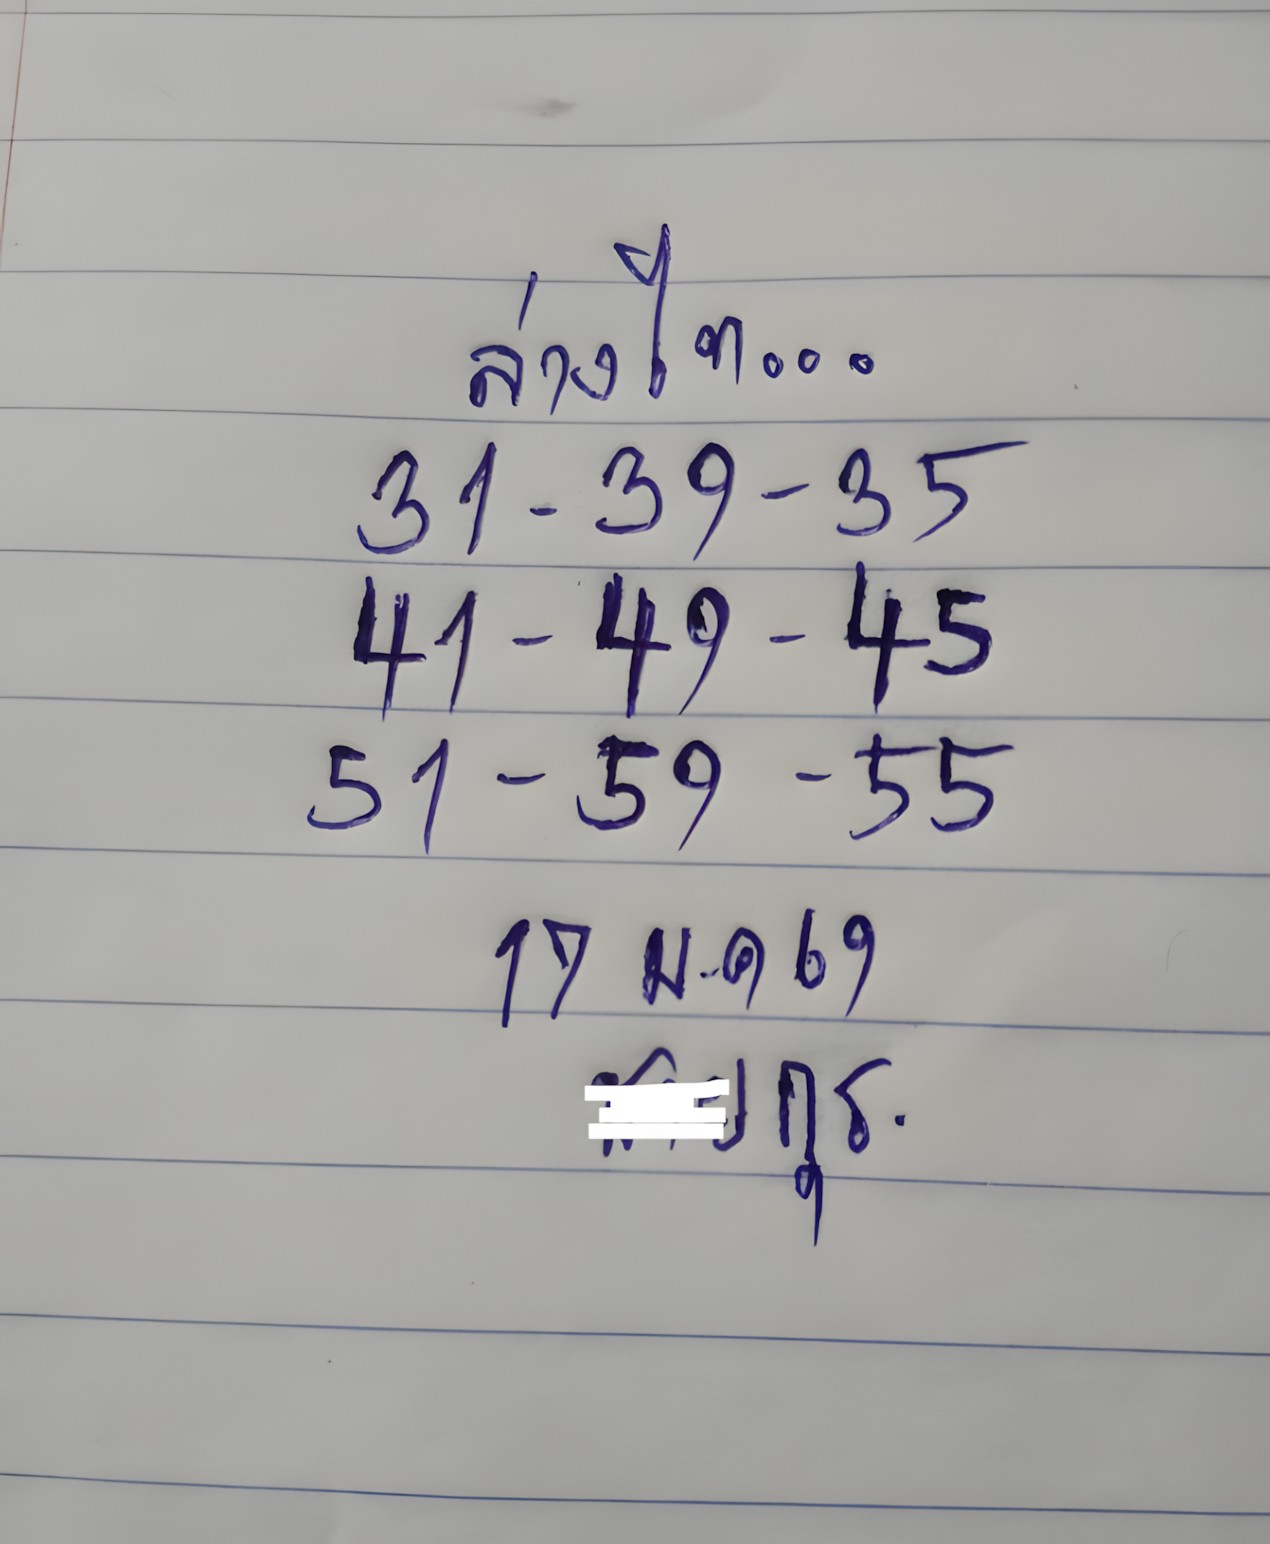 ล่างไท...
31-39-35
41-49-45
51-59-55
17 ม.ค 69